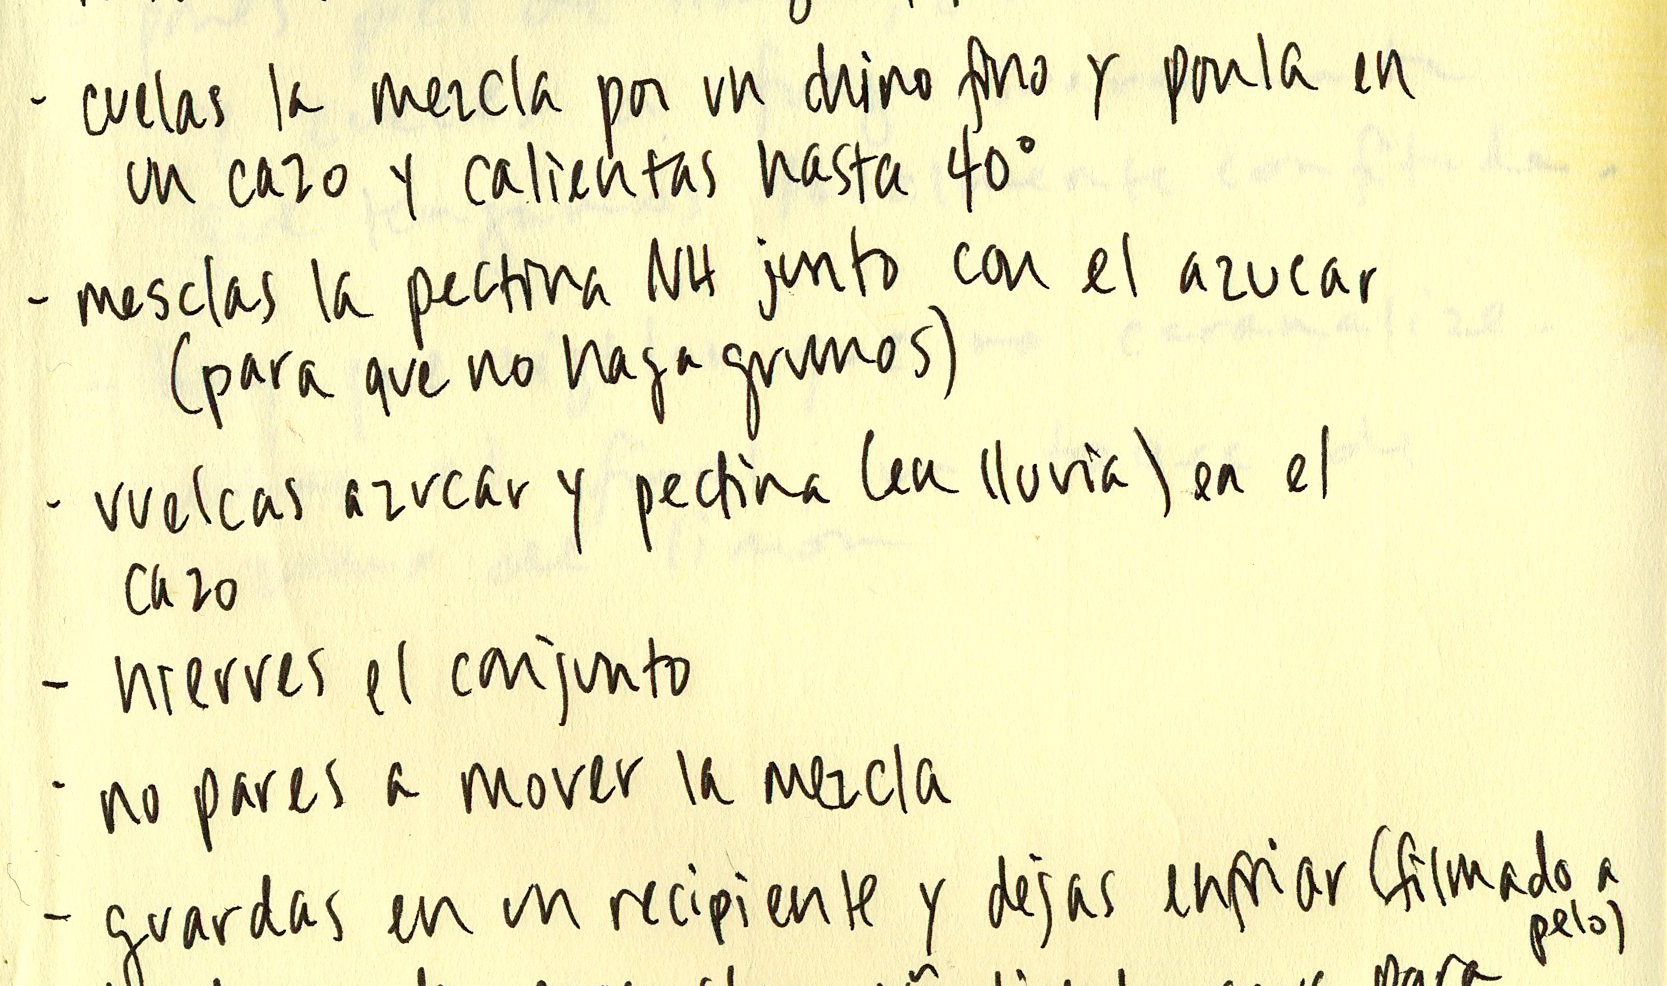 - cuelas la mezcla por un chino fino y ponla en
un cazo y calientas hasta 40°
- mesclas la pectina NH junto con el azucar
(para que no haga grumos)
- vuelcas azucar y pectina (en lluvia) en el
cazo
- hierves el conjunto
- no pares a mover la mezcla
- guardas en un recipiente y dejas enfriar (filmado a
pelo)
para